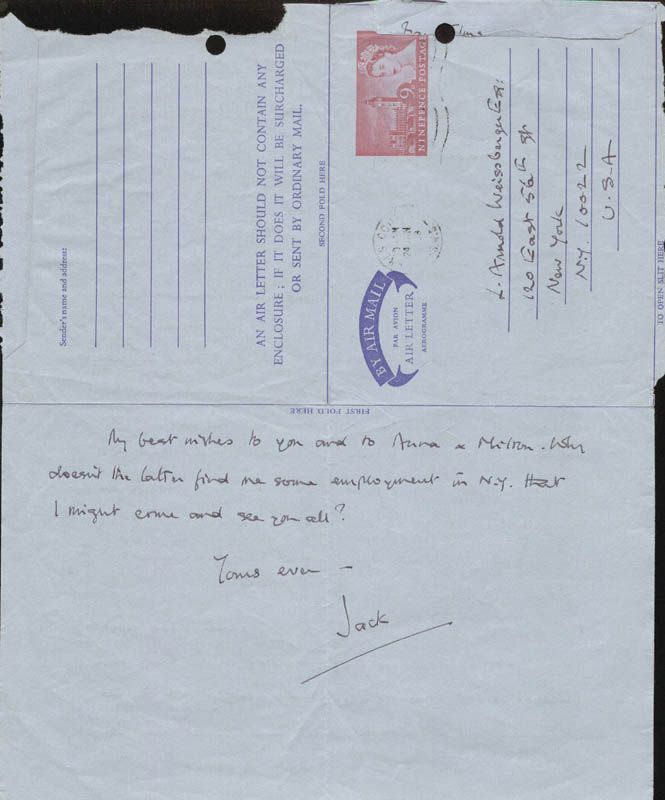 Sender's name and address:
AN AIR LETTER SHOULD NOT CONTAIN ANY
ENCLOSURE; IF IT DOES IT WILL BE SURCHARGED
OR SENT BY ORDINARY MAIL.
SECOND FOLD HERE
NINEPENCE·POSTAGE
9D
BY AIR MAIL
PAR AVION
AIR LETTER
AEROGRAMME
L. Arnold Weissberger Esq:
120 East 56th St
New York
N.Y. 10022
U.S.A
TO OPEN SLIT HERE
FIRST FOLD HERE
My best wishes to you and to Anna & Milton. Why
doesn't the latter find me some employment in N.Y. that
I might come and see you all?
Yours ever –
Jack